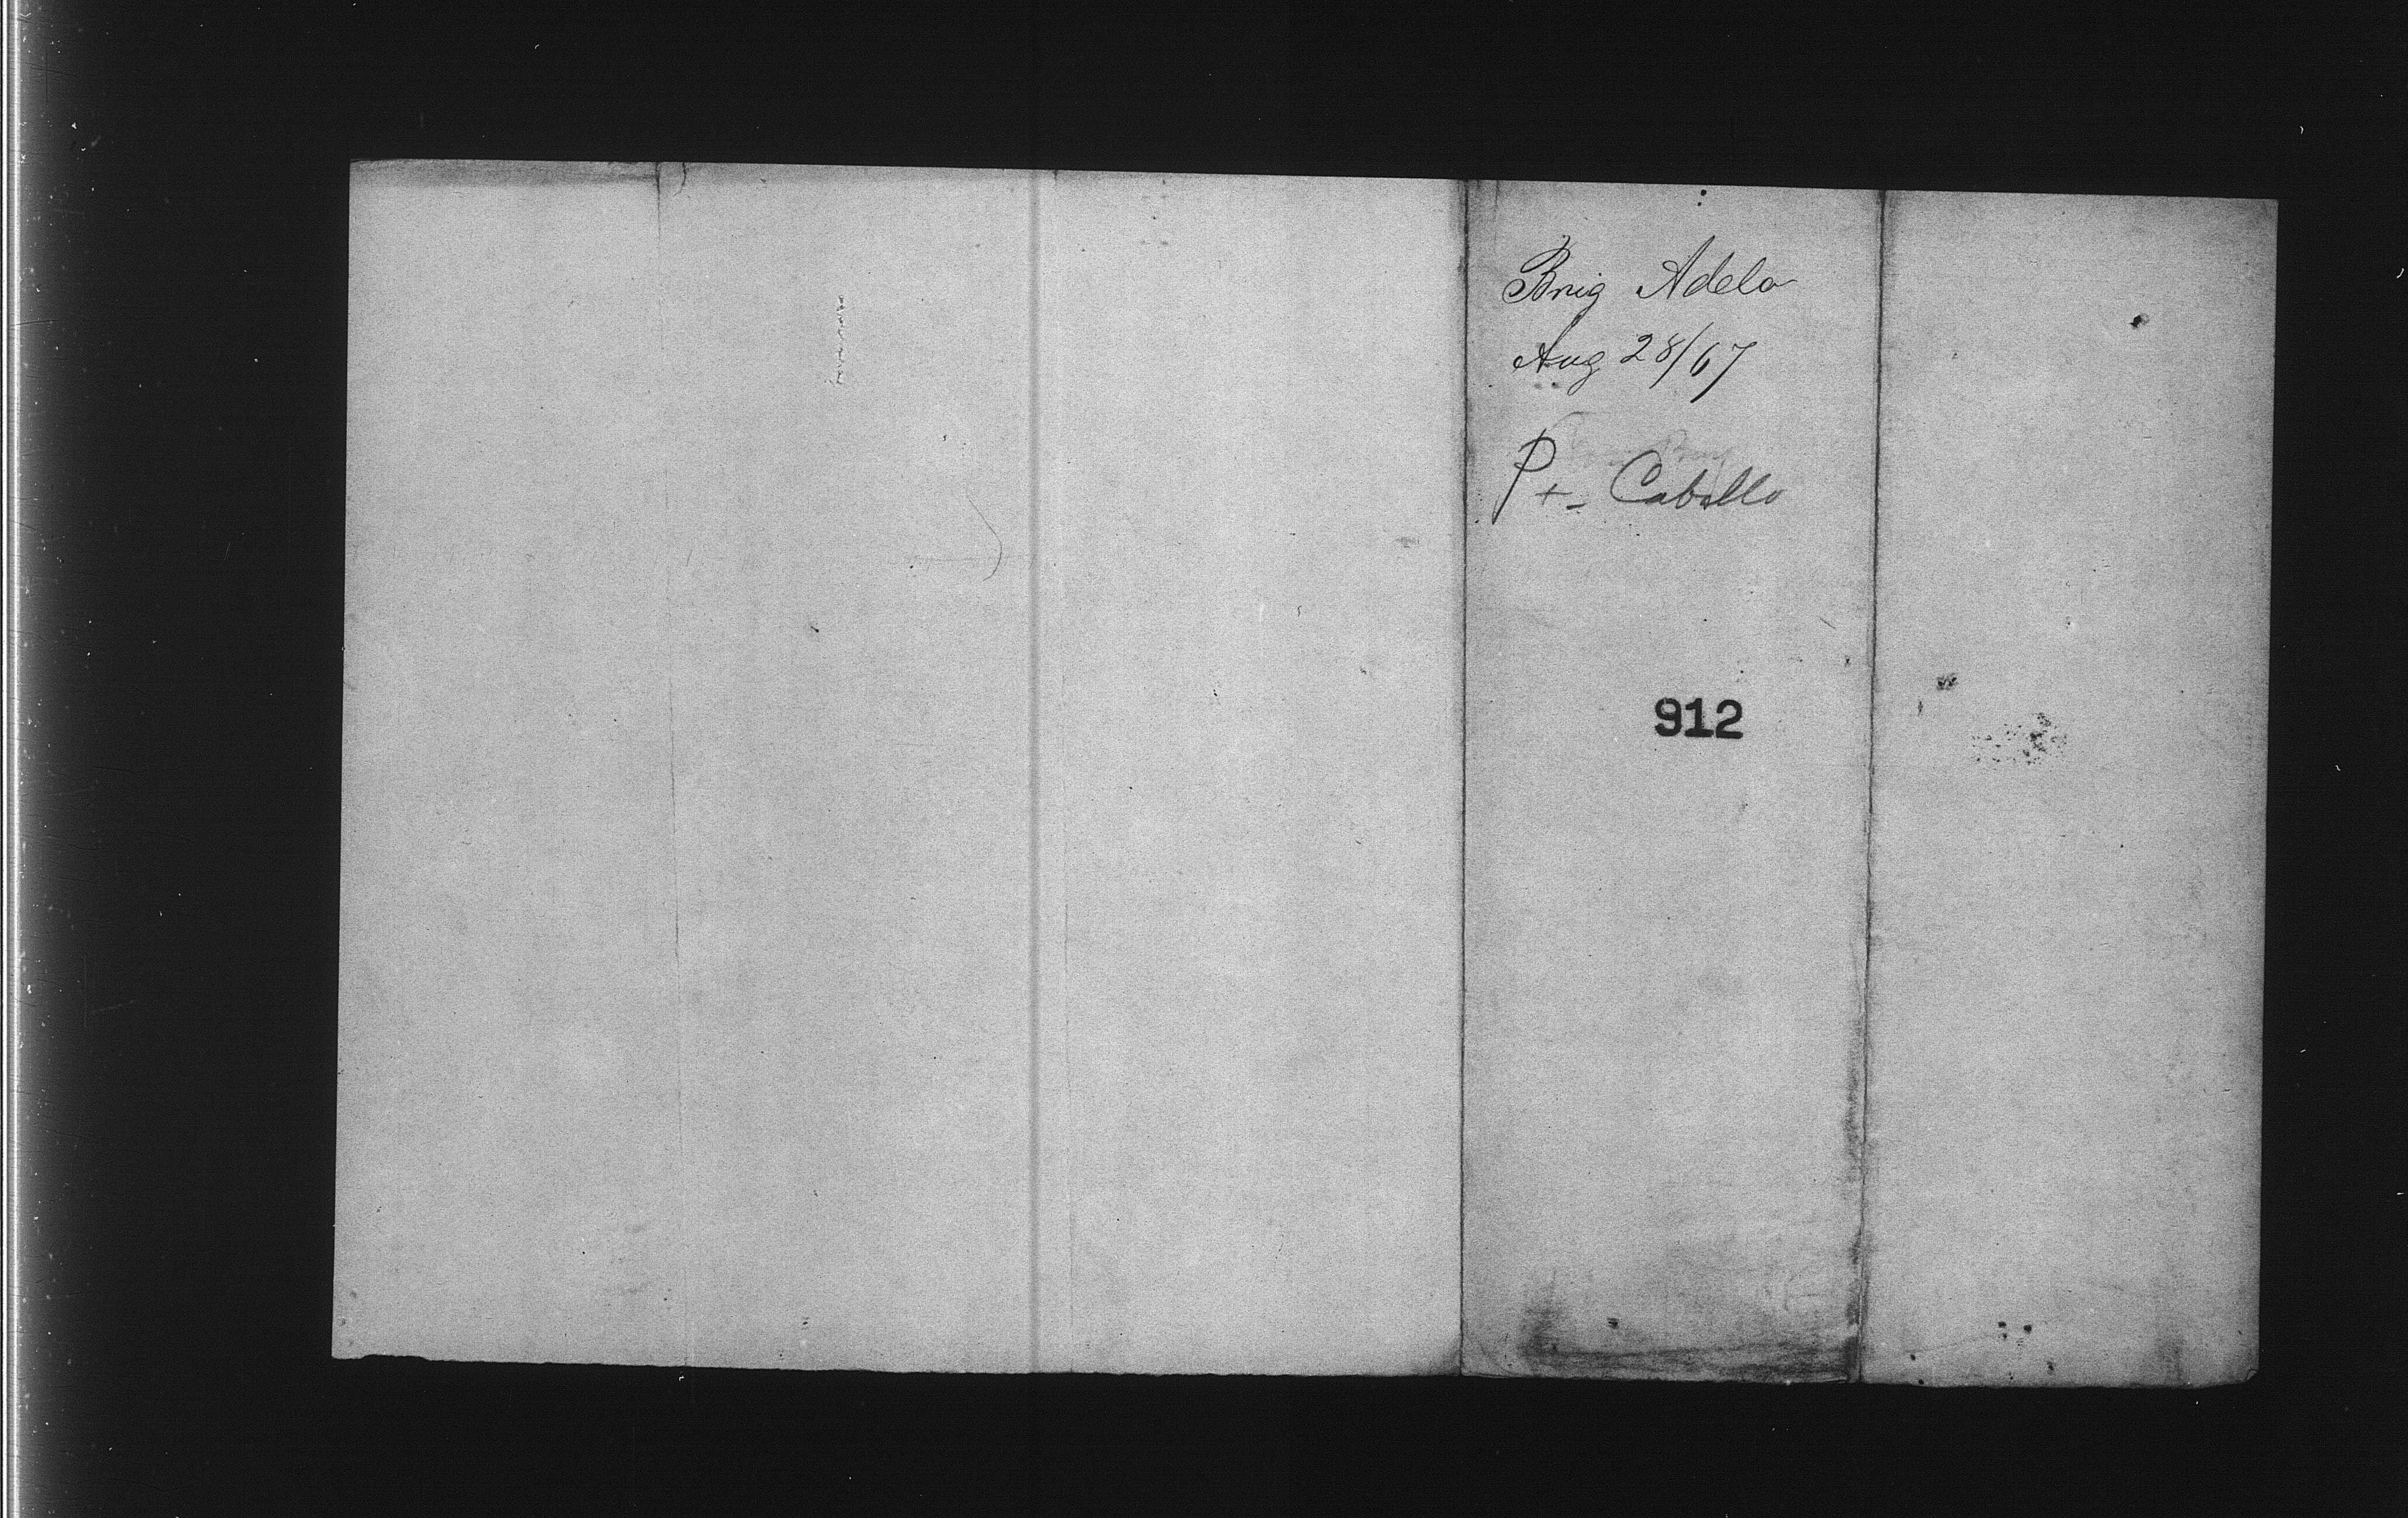 Brig Adela
Aug 28/67
Pt- Cabello
912